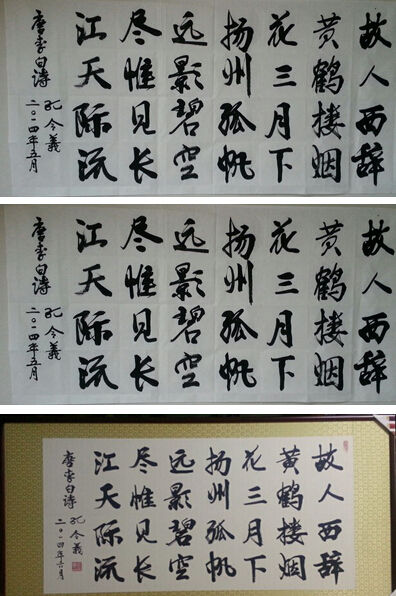 故人西辞
黄鹤楼烟
花三月下
扬州孤帆
远影碧空
尽惟见长
江天际流
唐李白诗
孔令義
二〇一四年五月
故人西辞
黄鹤楼烟
花三月下
扬州孤帆
远影碧空
尽惟见长
江天际流
唐李白诗
孔令義
二〇一四年五月
故人西辞
黄鹤楼烟
花三月下
扬州孤帆
远影碧空
尽惟见长
江天际流
唐李白诗
孔令義
二〇一四年六月